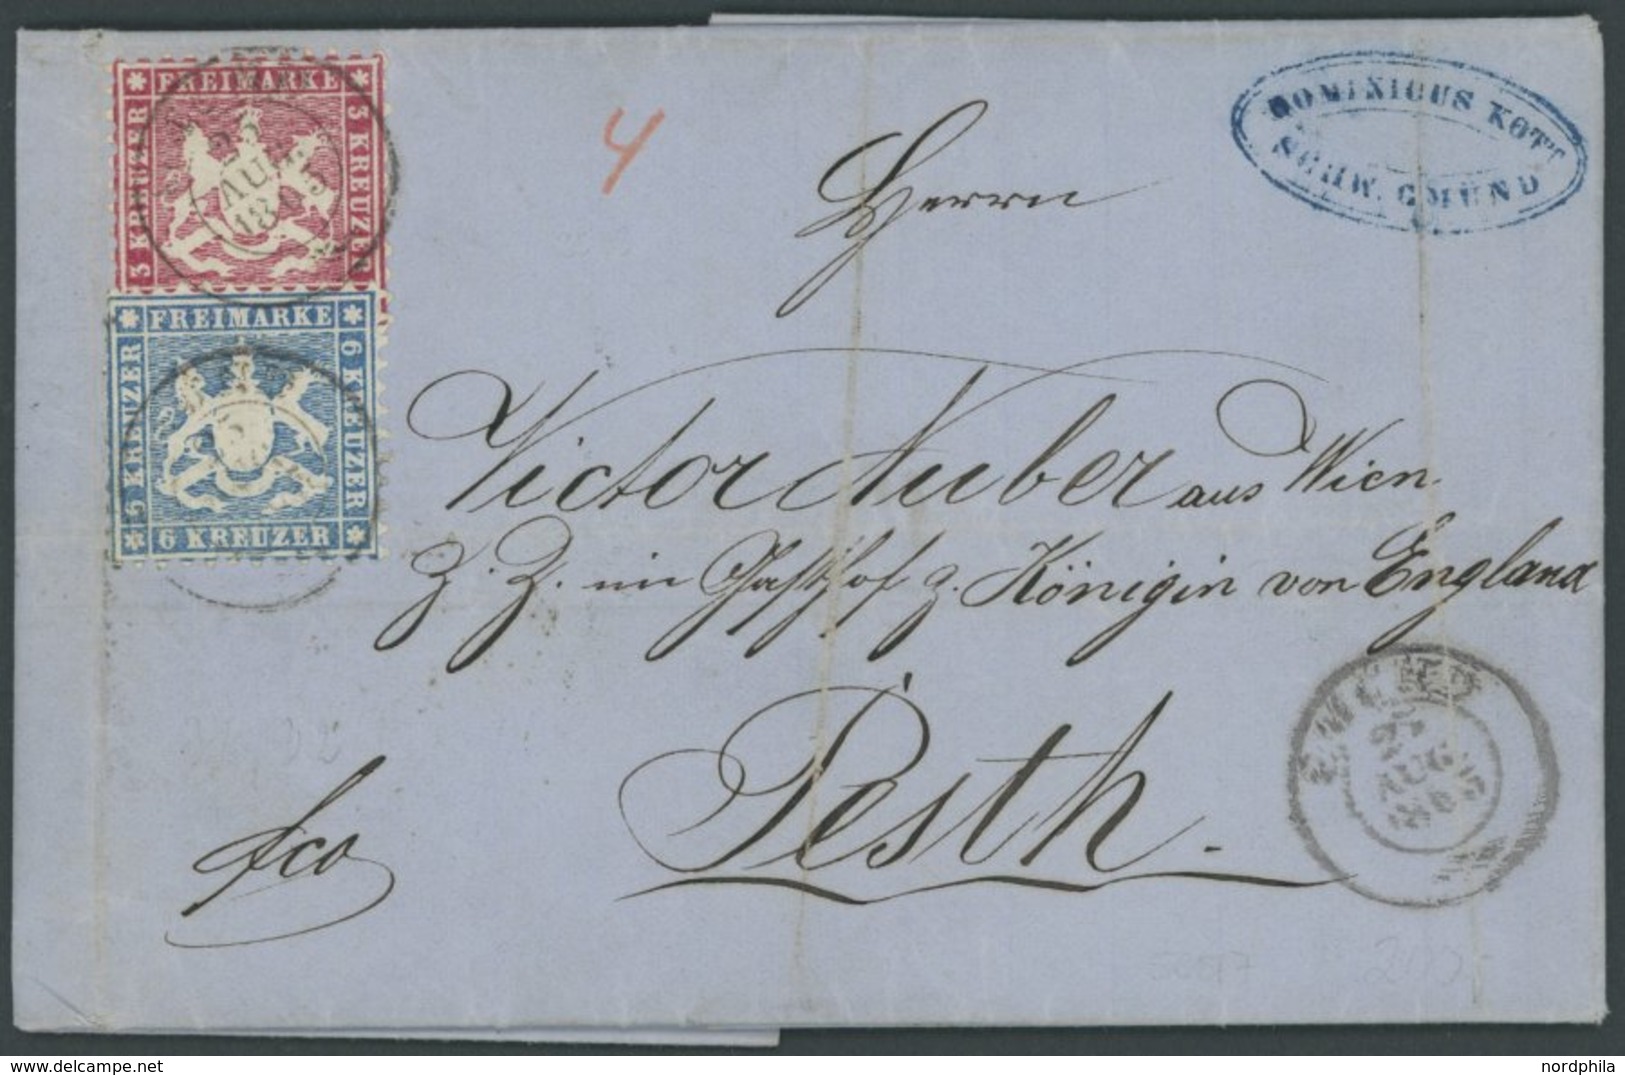 FREIMARKE
3 KREUZER
3 KREUZER
25
AUG.
1865
FREIMARKE
6 KREUZER
6 KREUZER
6 KREUZER
4
DOMINICUS KOTT
SCHW. GMÜND
Herrn
Victor Auber aus Wien
z. Z. im Gasthof z. Königin von England
Pesth.
fco
AUG
nordphila